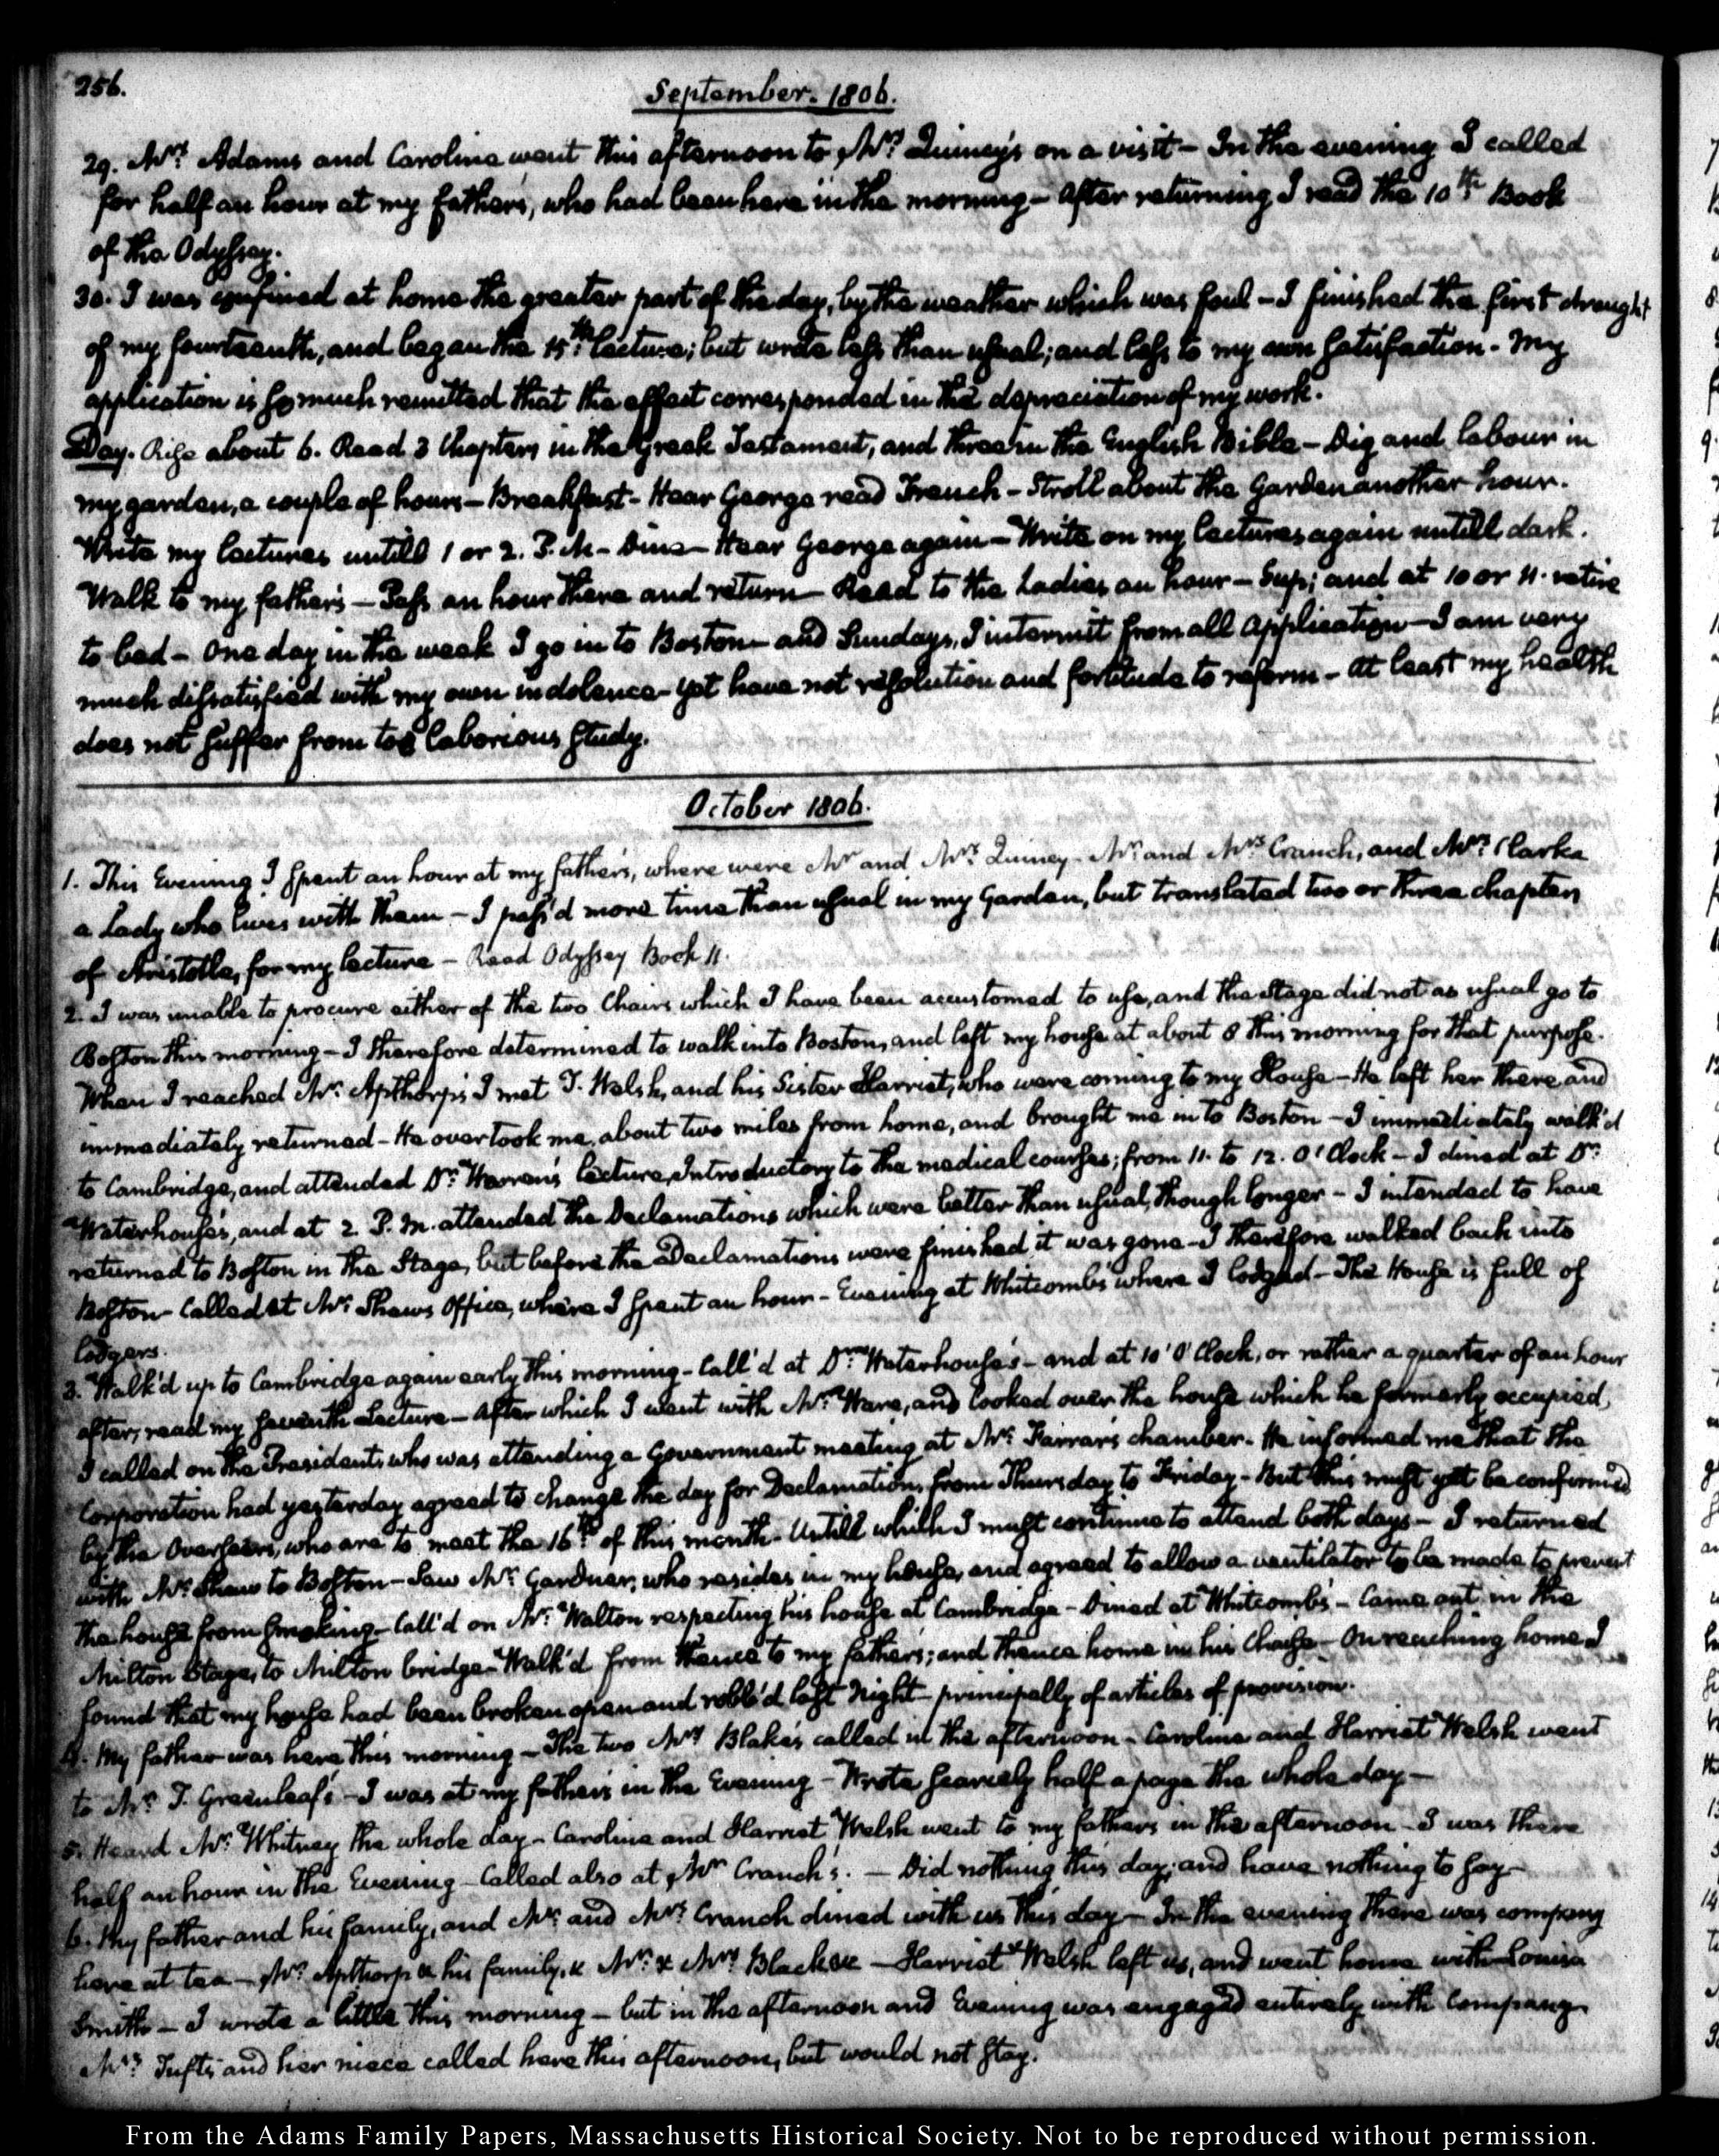 256.
September. 1806.
29. Mrs. Adams and Caroline went this afternoon to Mrs. Quincy's on a visit — In the evening I called
for half an hour at my father's, who had been here in the morning — After returning I read the 10th Book
of the Odyssey.
30. I was confined at home the greater part of the day, by the weather which was foul — I finished the first draught
of my fourteenth, and began the 15th lecture; but wrote less than usual; and less to my own satisfaction. My
application is so much remitted that the effect corresponded in the depreciation of my work.
Day. Rise about 6. Read 3 Chapters in the Greek Testament, and three in the English Bible — Dig and labour in
my garden, a couple of hours — Breakfast — Hear George read French — Stroll about the Garden another hour.
Write my lectures untill 1 or 2. P. M — Dine — Hear George again — Write on my lectures again untill dark.
Walk to my father's — Pass an hour there and return — Read to the Ladies an hour — Sup; and at 10 or 11. retire
to bed — One day in the week I go in to Boston — and Sundays, I intermit from all application — I am very
much dissatisfied with my own indolence — yet have not resolution and fortitude to reform — At least my health
does not suffer from too laborious study.
October 1806.
1. This Evening I spent an hour at my father's, where were Mr and Mrs. Quincy — Mr. and Mrs. Cranch, and Mrs. Clarke
a Lady who lives with them — I pass'd more time than usual in my Garden, but translated two or three chapters
of Aristotle, for my lecture — Read Odyssey Book 11.
2. I was unable to procure either of the two Chairs which I have been accustomed to use, and the Stage did not as usual go to
Boston this morning — I therefore determined to walk into Boston, and left my house at about 8 this morning for that purpose.
When I reached Mr. Apthorp's I met T. Welsh, and his Sister Harriet, who were coming to my House — He left her there and
immediately returned — He overtook me, about two miles from home, and brought me in to Boston — I immediately walk'd
to Cambridge, and attended Dr. Warren's lecture, Introductory to the medical courses; from 11. to 12. O'Clock — I dined at Dr.
Waterhouse's, and at 2 P. M. attended the Declamations which were better than usual, though longer — I intended to have
returned to Boston in the Stage, but before the Declamations were finished, it was gone — I therefore walked back into
Boston — Called at Mr. Shaw's Office, where I spent an hour — Evening at Whitcomb's where I lodged — The House is full of
lodgers.
3. Walk'd up to Cambridge again early this morning — Call'd at Dr. Waterhouse's — and at 10 O'Clock, or rather a quarter of an hour
after, read my seventh Lecture — After which I went with Mr. Ware, and looked over the house which he formerly occupied,
I called on the President, who was attending a Government meeting at Mr. Farrar's chamber. He informed me that the
Corporation had yesterday agreed to change the day for Declamations, from Thursday to Friday — But this must yet be confirmed
by the Overseers, who are to meet the 16th of this month. Untill which I must continue to attend both days — I returned
with Mr. Shaw to Boston — Saw Mr. Gardner, who resides in my house, and agreed to allow a ventilator to be made to prevent
the house from smoking — Call'd on Mr. Walton respecting his house at Cambridge — Dined at Whitcomb's — Came out in the
Milton Stage, to Milton bridge — Walk'd from thence to my father's; and thence home in his Chaise — On reaching home I
found that my house had been broken open and robb'd last Night — principally of articles of provision.
4. My father was here this morning — The two Mrs Blake's called in the afternoon — Caroline and Harriet Welsh went
to Mr. T. Greenleaf's — I was at my father's in the Evening — Wrote scarcely half a page the whole day —
5. Heard Mr. Whitney the whole day — Caroline and Harriet Welsh went to my father's in the afternoon — I was there
half an hour in the Evening — Called also at Mr Cranch's. — Did nothing this day; and have nothing to say —
6. My father and his family, and Mr. and Mrs. Cranch dined with us this day — In the evening there was company
here at tea — Mr. Apthorp & his family, & Mr. & Mrs. Black &c — Harriet Welsh left us, and went home with Louisa
Smith — I wrote a little this morning — but in the afternoon and Evening was engaged entirely with Company.
Mrs. Tufts and her niece called here this afternoon, but would not stay.
From the Adams Family Papers, Massachusetts Historical Society. Not to be reproduced without permission.